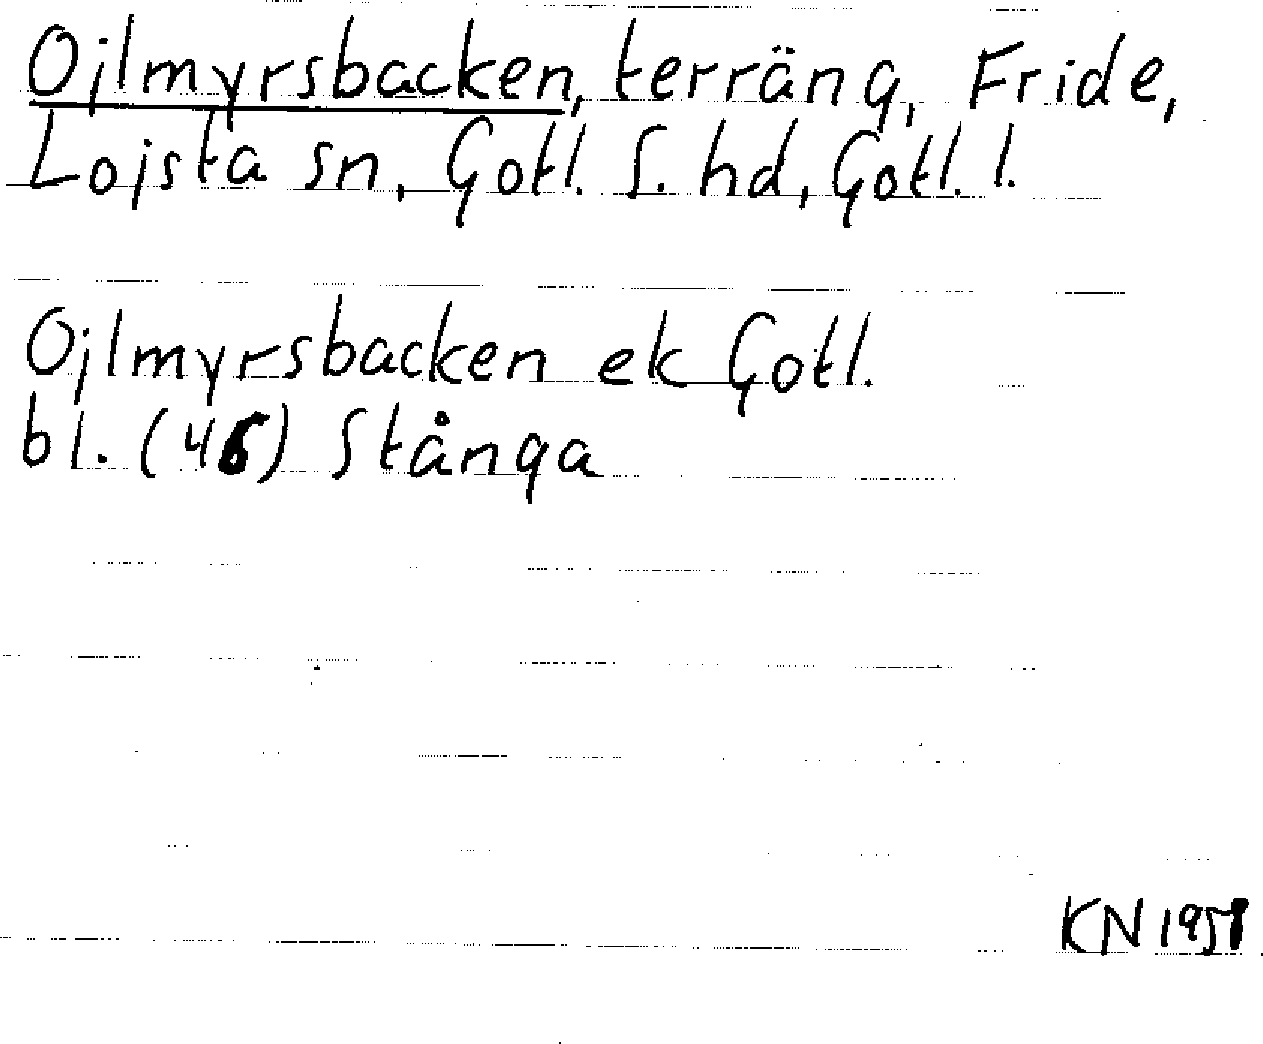 Ojlmyrsbacken, terräng, Fride,
Lojsta sn, Gotl. S. hd, Gotl. l.
Ojlmyrsbacken ek Gotl.
bl. (46) Stånga
KN 1958